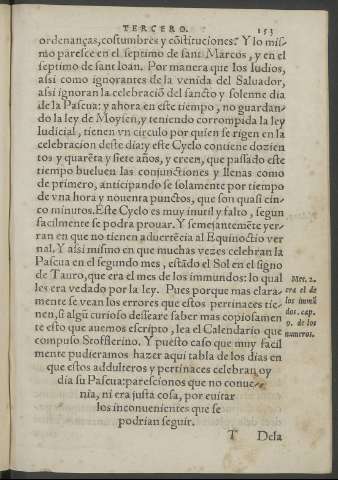 TERCERO. 153
ordenanças, costumbres y cõstituciones. Y lo mis-
mo paresce en el septimo de sant Marcos, y en el
septimo de sant Ioán. Por manera que los Iudios,
assi como ignorantes de la venida del Saluador,
assi ignoran la celebraciõ del sancto y solenne dia
de la Pascua: y ahora en este tiempo, no guardan-
do la ley de Moysen, y teniendo corrompida la ley
Iudicial, tienen vn circulo por quien se rigen en la
celebracion deste dia: y este Cyclo contiene dozien
tos y quarẽta y siete años, y creen, que passado este
tiempo bueluen las conjunctiones y llenas como
de primero, anticipando se solamente por tiempo
de vna hora y nouenta punctos, que son quasi cin-
co minutos. Este Cyclo es muy inutil y falto, segun
facilmente se podra prouar. Y semejantemẽte yer-
ran en que no tienen aduertẽcia al Equinoctio ver
nal. Y assi mismo en que muchas vezes celebran la
Pascua en el segundo mes, estãdo el Sol en el signo
de Tauro, que era el mes de los immundos: lo qual
les era vedado por la ley. Pues porque mas clara-
mente se vean los errores que estos pertinaces tie-
nen, si algũ curioso desseare saber mas copiosamen
te esto que auemos escripto, lea el Calendario que
compuso Stofflerino. Y puesto caso que muy facil
mente pudieramos hazer aqui tabla de los dias en
que estos addulteros y pertinaces celebran oy
dia su Pascua: parescionos que no conue-
nia, ni era justa cosa, por euitar
los inconuenientes que se
podrian seguir.
Mes. 2.
era el de
los immũ
dos. cap.
9. de los
numeros.
T Desa